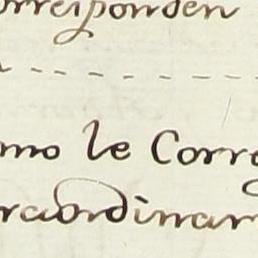 orresponden
mo le Corre
raordinar